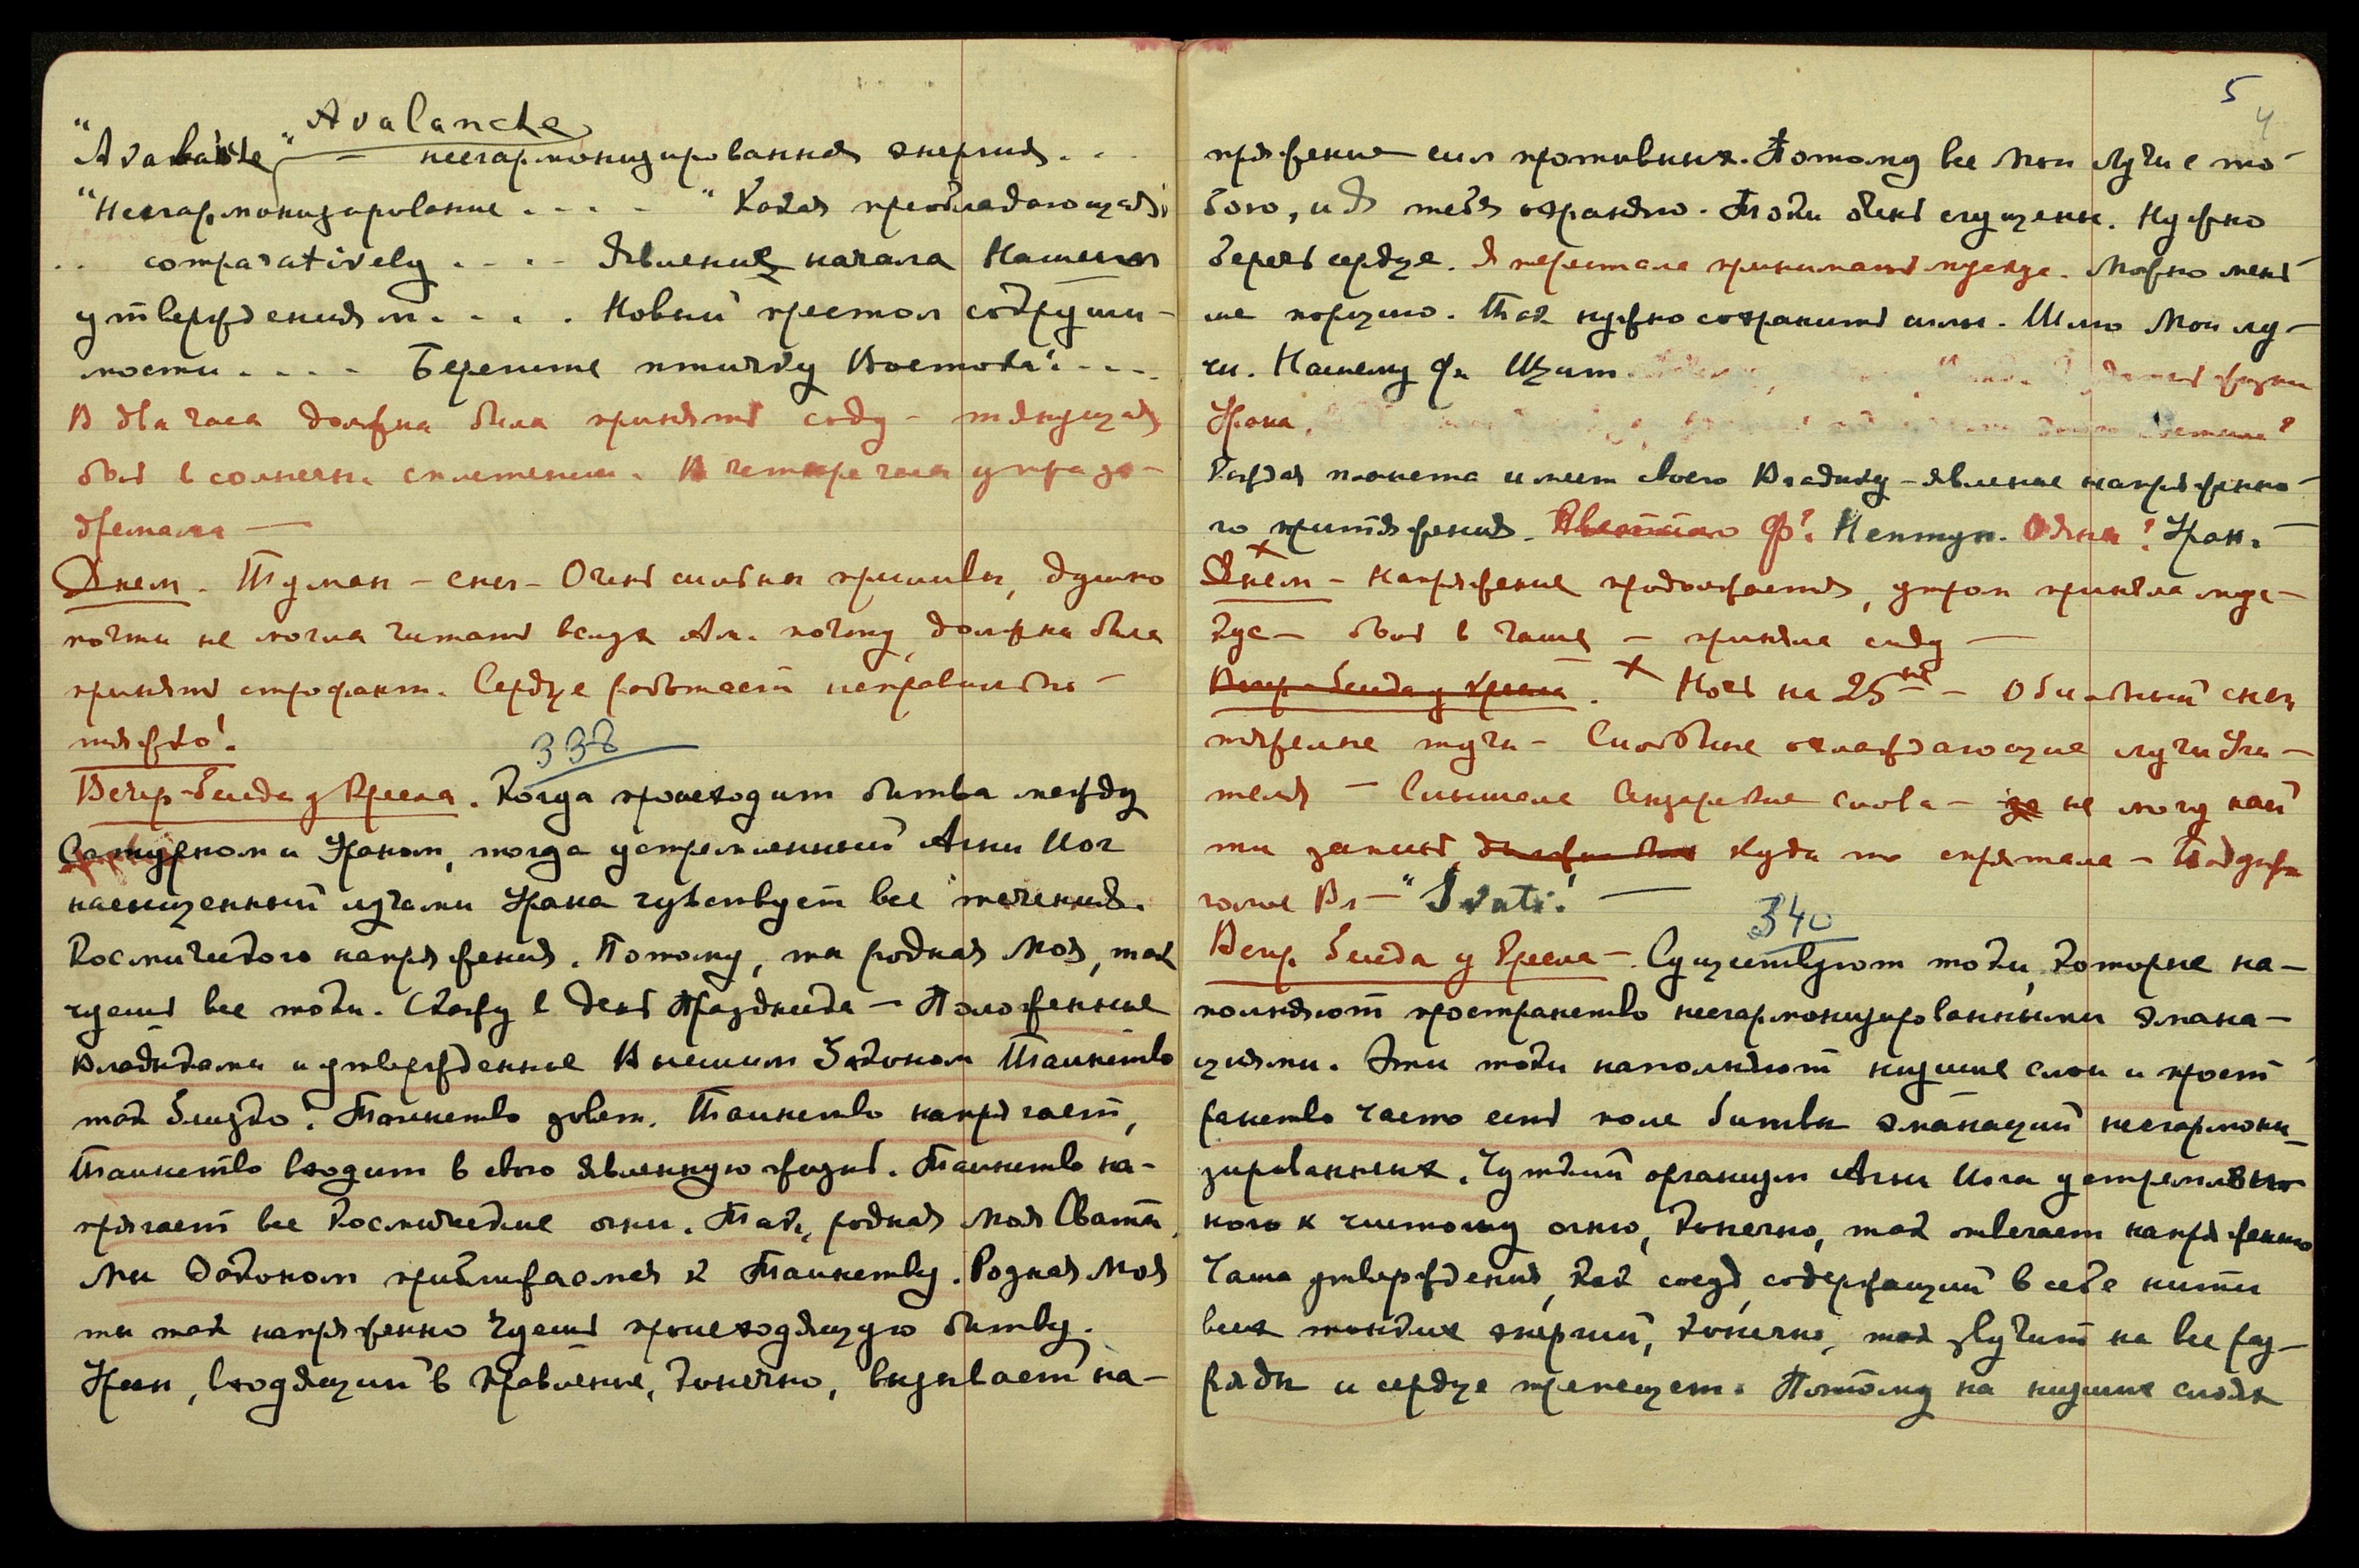 Avalanche
"Avalanche" — несгармонизированная энергия. . .
"Несгармонизирование . . . . " Какая преобладающая!
. . comparatively . . . . Явление начала Нашим
утверждениям. . . . Новый престол содружи-
мости . . . . Берегите птичку Востока! . . .
В два часа должна была принять соду – тянущая
боль в солнечн. сплетении. В четыре часа
дремала —
Днем. Туман – снег – Очень сильны приливы, душно
почти не могла читать вслух Ам. почту, должна была
принять строфант. Сердце работает неправильно –
тяжко!
338
Вечер – беседа у Кресла. Когда происходит битва между
Сатурном и Ураном, тогда устремленный Агни Йог
насыщенный лучами Урана чувствует все течения
Космического напряжения. Потому, ты родная Моя, так
чуешь все токи. Скажу в день Праздника – Положенное
Владыками и утвержденное Высшим Законом Таинство
так близко! Таинство зовет. Таинство напрягает,
Таинство входит в свою явленную жизнь. Таинство на-
прягает все Космические огни. Так, родная Моя Свати,
Мы Законом приближаемся к Таинству. Родная Моя
ты так напряженно чуешь происходящую битву.
Уран, входящий в правление, конечно, вызывает на-
5
4
пряжение сил противных. Потому все Мои Лучи с то-
бою, и Я тебя охраняю. Токи очень сгущены. Нужно
беречь сердце. Я перестала принимать мускус. Можно мень-
ше порцию. Так нужно сохранить силы. Шлю Мои лу-
чи. Нашему Ф. Щит. жизни
Урана.
Каждая планета имеет своего Владыку – явление напряженно-
го притяжения. Ф? Нептун. Уран.
Днем – Напряжение продолжается, утром приняла мус-
кус – боль в чаше – приняла соду —
Вечер – беседа у Кресла. Ночь на 25ое – Обильный снег
тяжелые тучи – охлаждающие лучи Учи-
теля – Слышала Сензарские слова – не могу най-
ти запись, куда-то спрятала –
голос Вл – "Svati! —
340
Вечер. беседа у Кресла – Существуют токи, которые на-
полняют пространство несгармонизированными эмана-
циями. Эти токи наполняют низшие слои и прост-
ранство часто есть поле битвы эманаций несгармони-
зированных. Чуткий организм Агни Йога устремлен-
ного к чистому огню, конечно, так отвечает напряженно
Чаша утверждения, как сосуд, содержащий в себе нити
всех тонких энергий, конечно, так звучит на все раз-
ряды и сердце трепещет. Потому на низших слоях